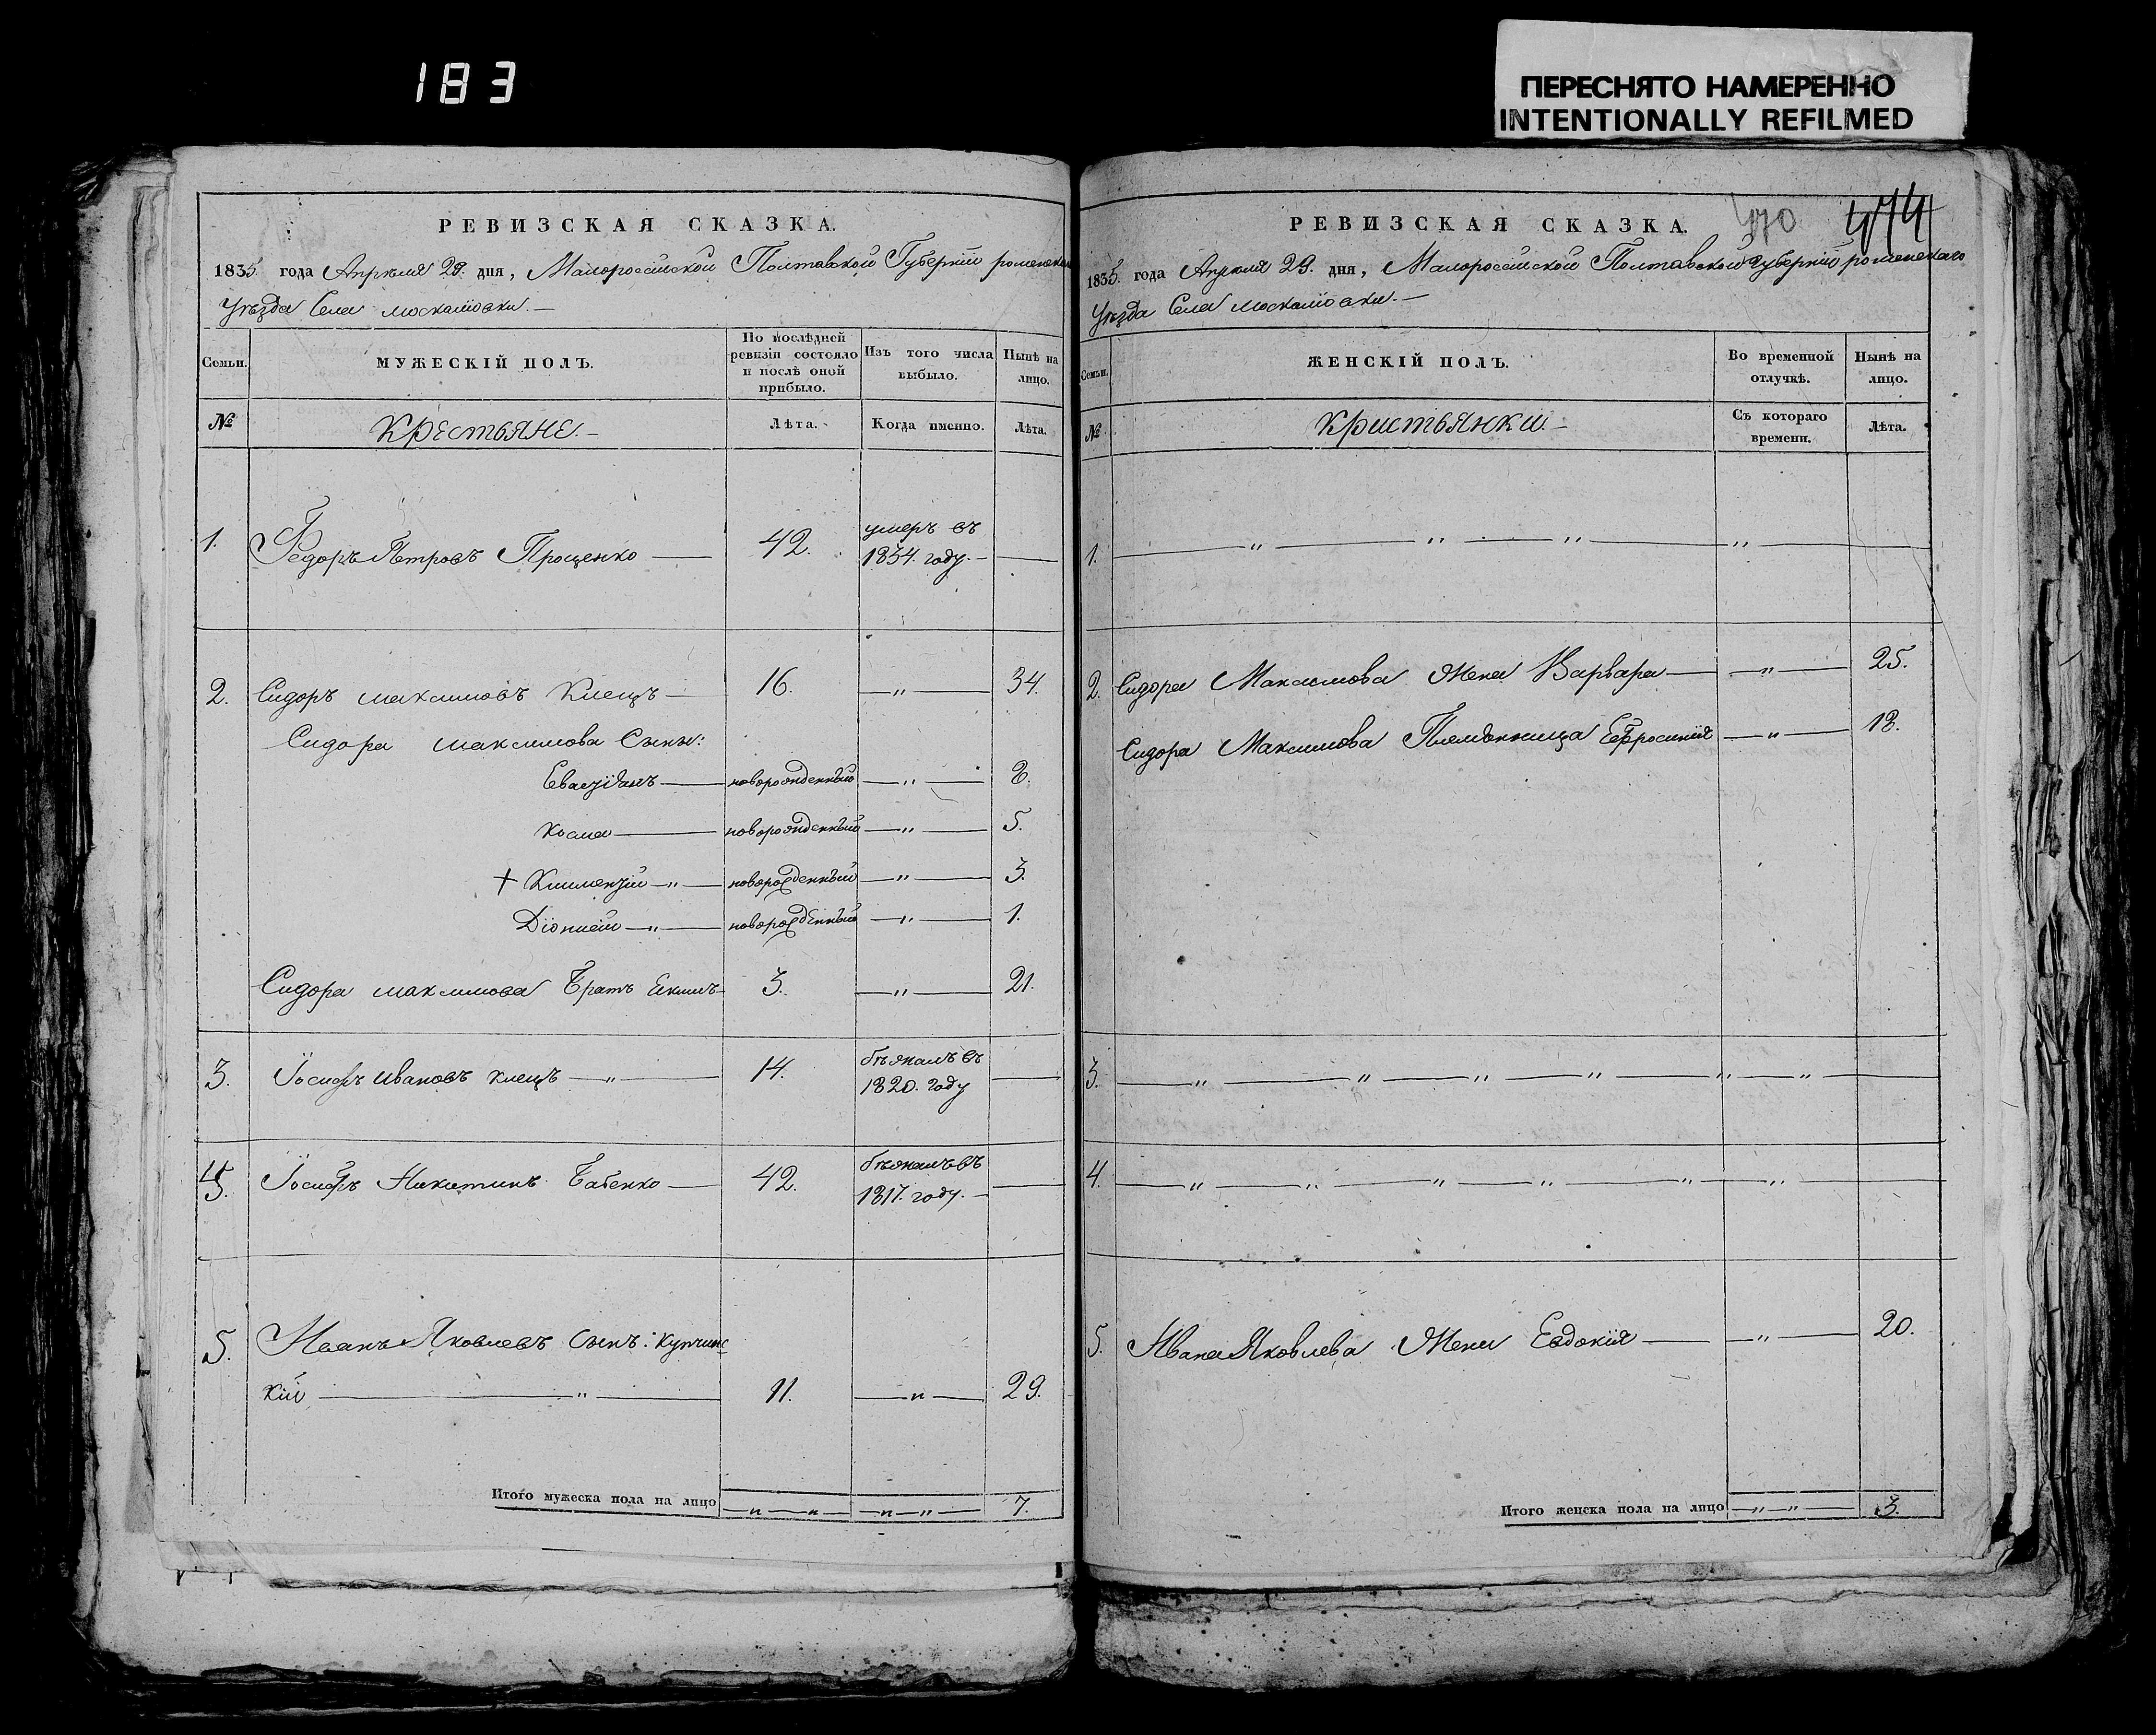 183
ПЕРЕСНЯТО НАМЕРЕННО
INTENTIONALLY REFILMED
РЕВИЗСКАЯ СКАЗКА.
1835. года Апрѣля 29. дня, Малороссійской Полтавской Губерніи роменскаго
Уѣзда Села москалiовки.—
Семьи.
МУЖЕСКІЙ ПОЛЪ.
По послѣдней ревизіи состояло и послѣ оной прибыло.
Изъ того числа выбыло.
Нынѣ на лицо.
№
Крестьяне.—
Лѣта.
Когда именно.
Лѣта.
1. Федоръ Петровъ Проценко — 42. умеръ въ 1834. году.— —
2. Сидоръ максимовъ Клецъ — 16. —„— 34.
Сидора максимова Сыны:
новорожденный —„—
Косма — новорожденный —„— 5.
+ Климентій —„— новорожденный —„— 3.
Діонисій —„— новорожденный —„— 1.
Сидора максимова Братъ Екимъ — 3. —„— 21.
3. Іосифъ ивановъ клецъ —„— 14. бѣжалъ въ 1820. году —
4. Іосифъ Никитинъ Бабенко — 42. бѣжалъ въ 1817. году.— —
5. Иванъ Яковлевъ сынъ Купчинс
кій —„— 11. —„— 29.
Итого мужеска пола на лицо —„—„— —„—„— 7.
РЕВИЗСКАЯ СКАЗКА.
470 474
1835. года Апрѣля 29. дня, Малороссійской Полтавской губерніи роменскаго
Уѣзда Села москалiовки.—
Семьи.
ЖЕНСКІЙ ПОЛЪ.
Во временной отлучкѣ.
Нынѣ на лицо.
№
Кристьянки.—
Съ котораго времени.
Лѣта.
1. —„—„—„—„—
2. Сидора Максимова Жена Варвара — —„— 25.
Сидора Максимова Племянница Ефросинія —„— 18.
3. —„—„—„—„—„—„—
4. —„—„—„—„—„—„—
5. Ивана Яковлева Жена Евдокія — —„— 20.
Итого женска пола на лицо —„—„— 3.